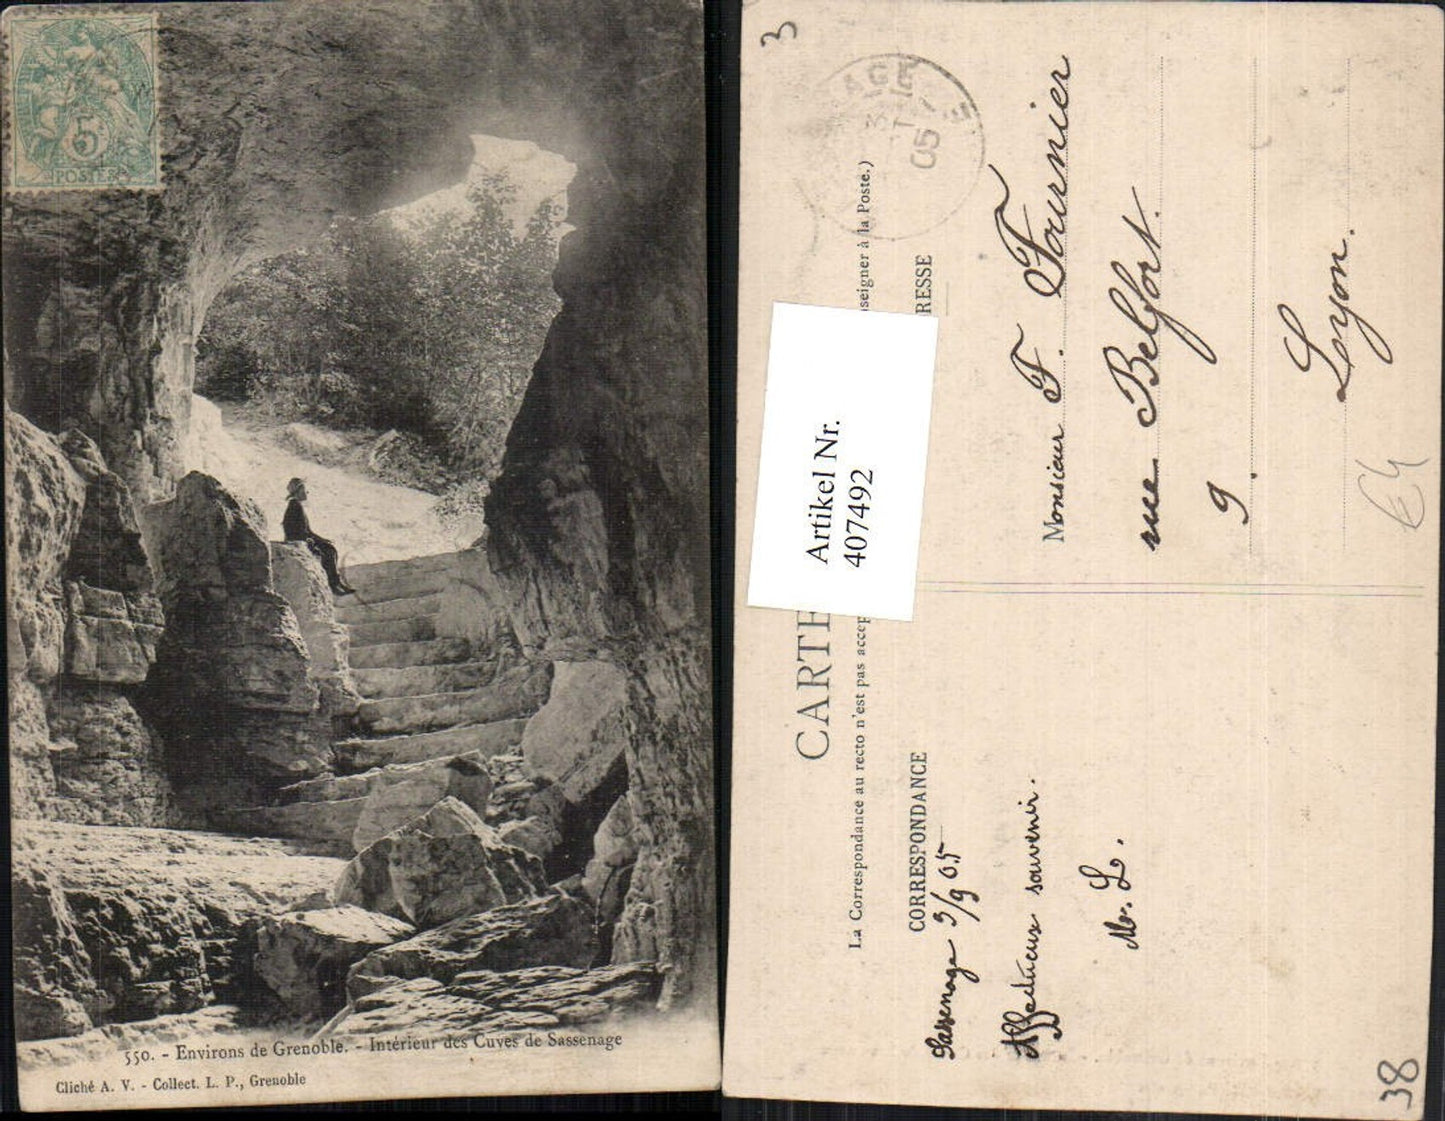 5c
POSTES
550. - Environs de Grenoble. - Intérieur des Cuves de Sassenage
Cliché A. V. - Collect. L. P., Grenoble
3
CARTE
La Correspondance au recto n'est pas accep
seigner à la Poste.)
Artikel Nr.
407492
CORRESPONDANCE
RESSE
Sassenage 3/9 05
Affectueux souvenir.
M. L.
Monsieur F. Fournier
rue Belfort.
9.
Lyon.
05
€4
38